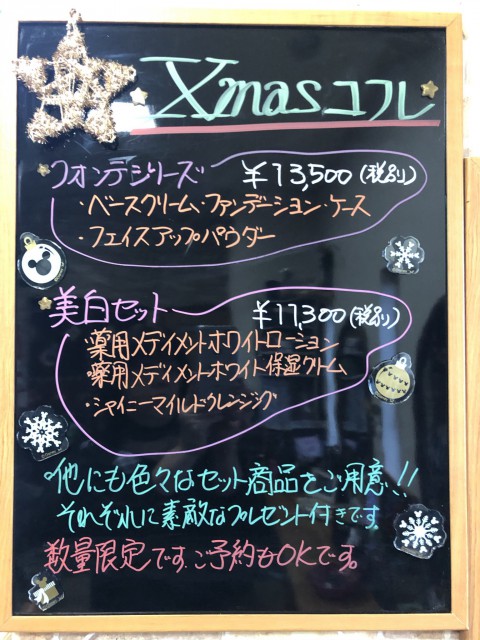 Xmasコフレ
フォンデシリーズ ¥13,500(税別)
・ベースクリーム・ファンデーション・ケース
・フェイスアップパウダー
美白セット ¥11,300(税別)
・薬用メディメントホワイトローション
・薬用メディメントホワイト保湿クリーム
・シャイニーマイルドクレンジング
他にも色々なセット商品をご用意!!
それぞれに素敵なプレゼント付きです
数量限定です。ご予約もOKです。